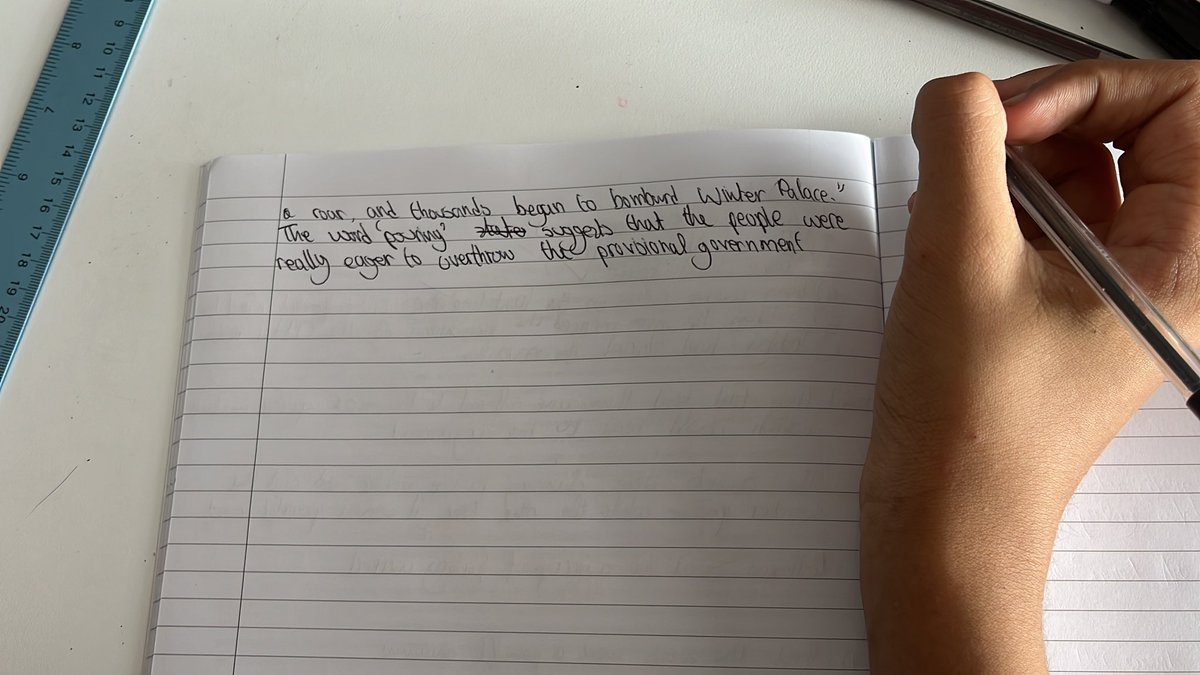 a roar, and thousands began to bomburd Winter Palace."
The word 'pouring' suggests that the people were
really eager to overthrow the provisional government
9 10 11 12 13 14 15 16 17 18 19 20